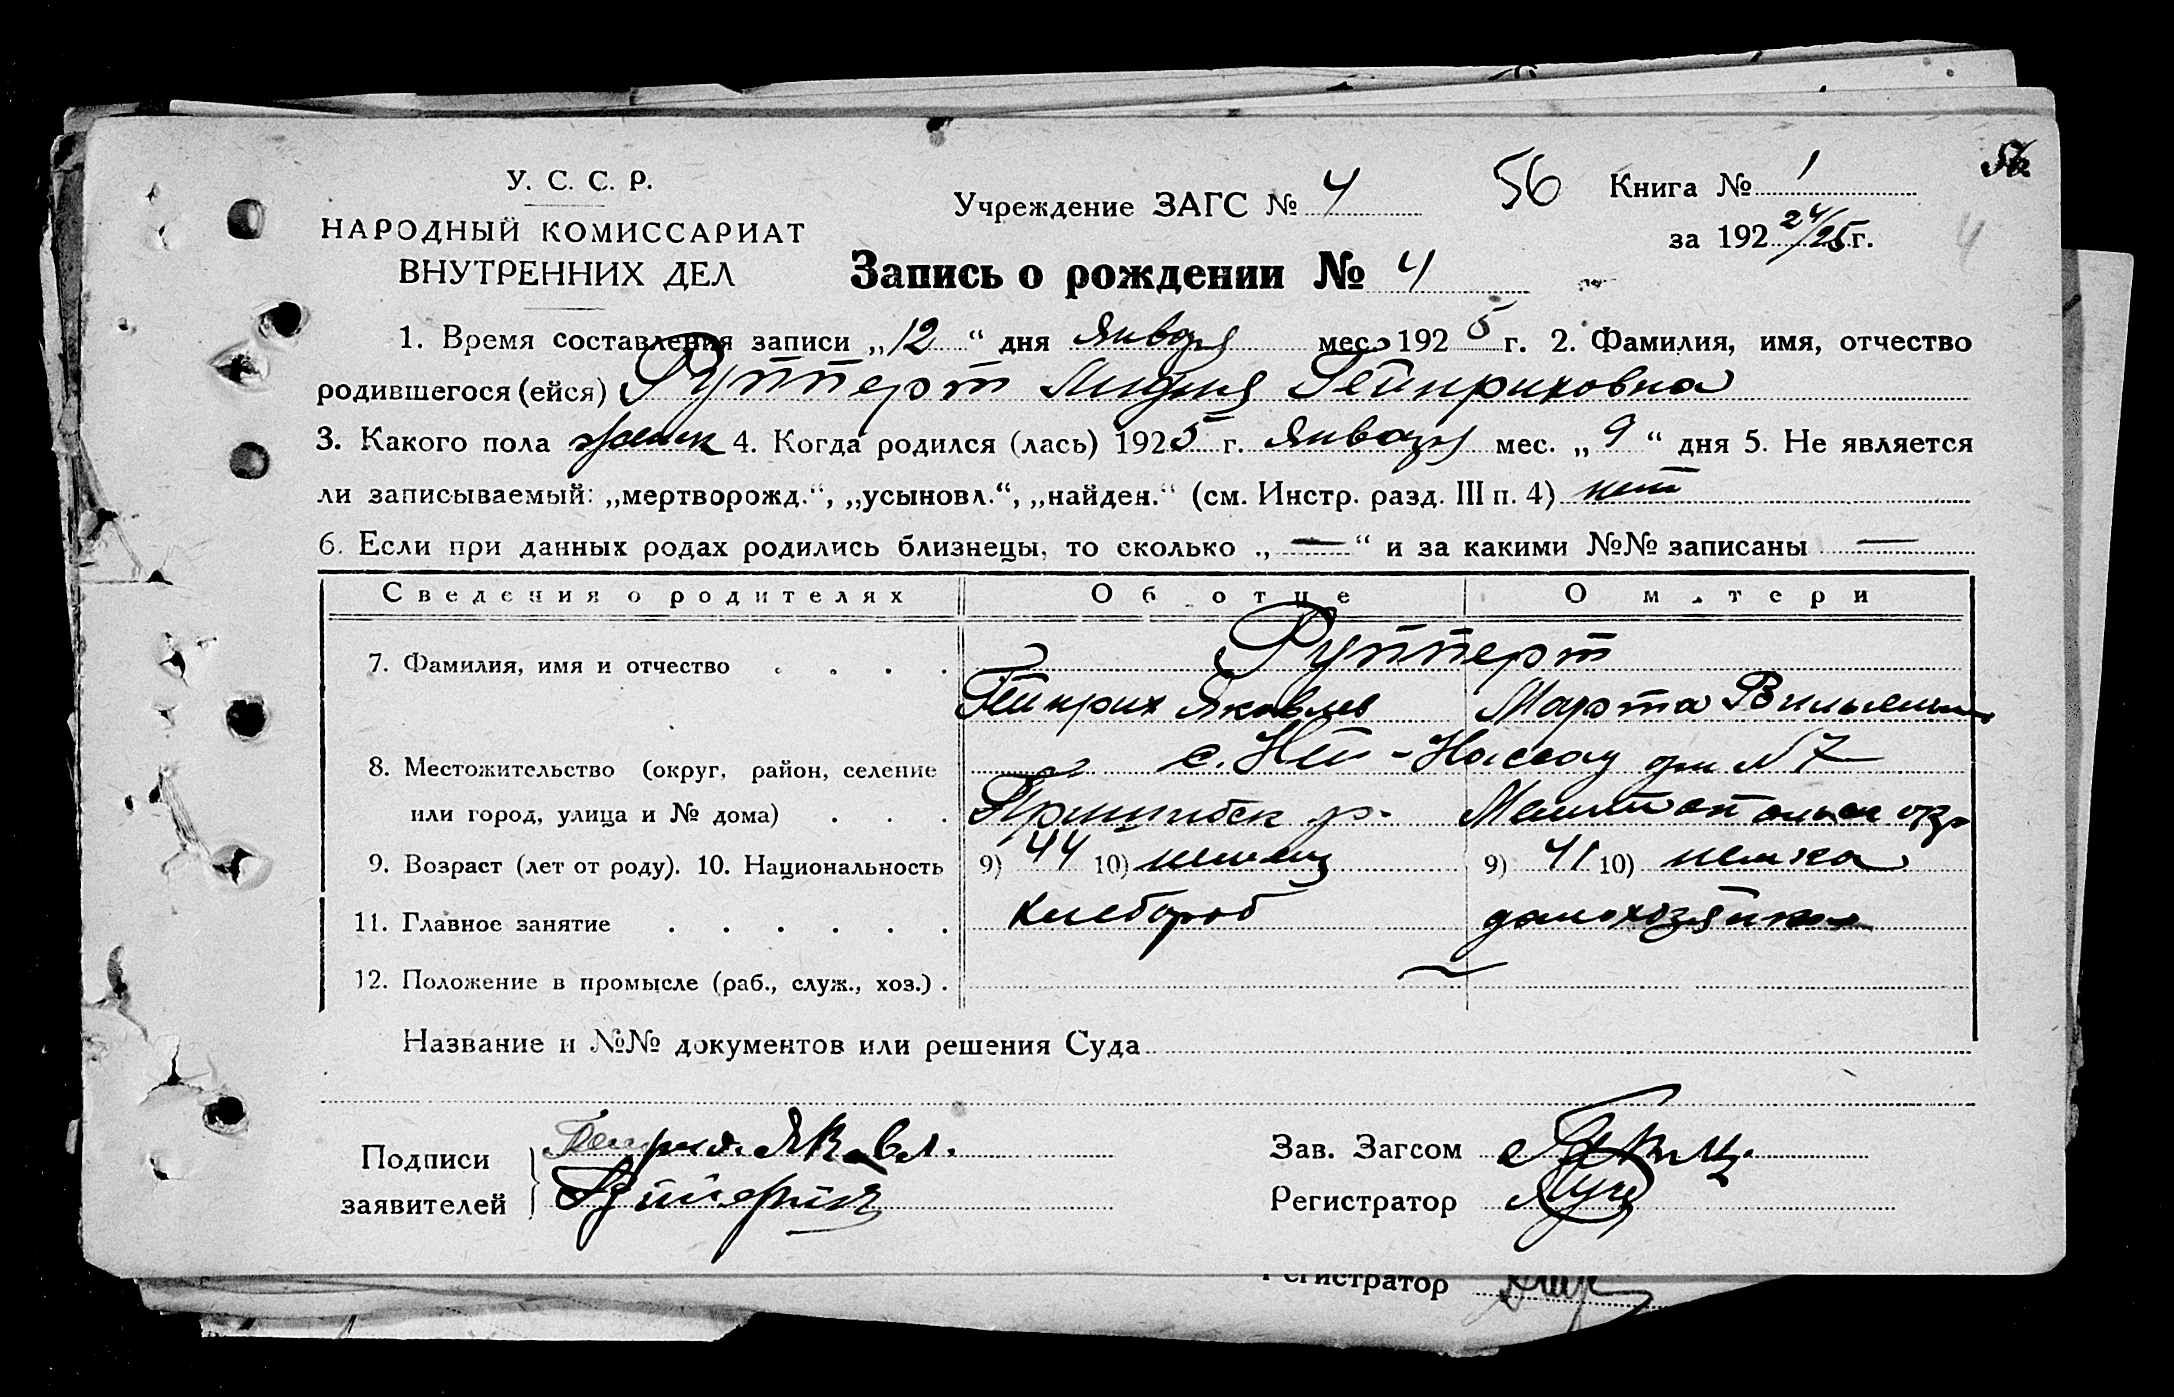 У. С. С. Р.
НАРОДНЫЙ КОМИССАРИАТ
ВНУТРЕННИХ ДЕЛ
Учреждение ЗАГС № 4
56
Книга № 1
за 192 24/25 г.
56
4
Запись о рождении № 4
1. Время составления записи „12“ дня Января мес. 1925 г. 2. Фамилия, имя, отчество
родившегося (ейся) Рупперт Лидия Гейнриховна
3. Какого пола женск 4. Когда родился (лась) 1925 г. Января мес. „9“ дня 5. Не является
ли записываемый: „мертворожд.“, „усыновл.“, „найден.“ (см. Инстр. разд. III п. 4) нет
6. Если при данных родах родились близнецы, то сколько „—“ и за какими №№ записаны —
Сведения о родителях Об отце О матери
7. Фамилия, имя и отчество . . . . Рупперт
Гейнрих Яковлев Марта Вильгельм
8. Местожительство (округ, район, селение с. Ней-Нассау № 7
или город, улица и № дома) . . . Пришибск р. Мелитопольск окр
9. Возраст (лет от роду). 10. Национальность 9) 44 10) немец 9) 41 10) немка
11. Главное занятие . . . . . . хлебороб домохозяйка
12. Положение в промысле (раб., служ., хоз.) . —
Название и №№ документов или решения Суда
Подписи
заявителей
Яковл.
Зав. Загсом
Регистратор
Регистратор